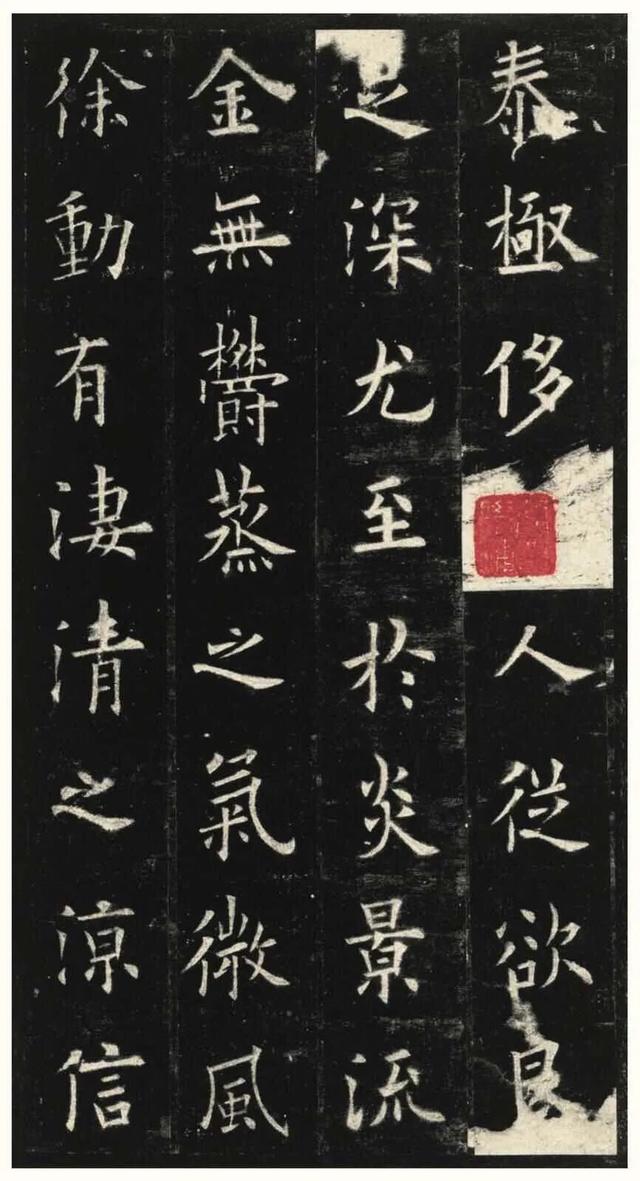 泰極侈人從欲良
深尤至於炎景流
金無鬱蒸之氣微風
徐動有淒清之涼信